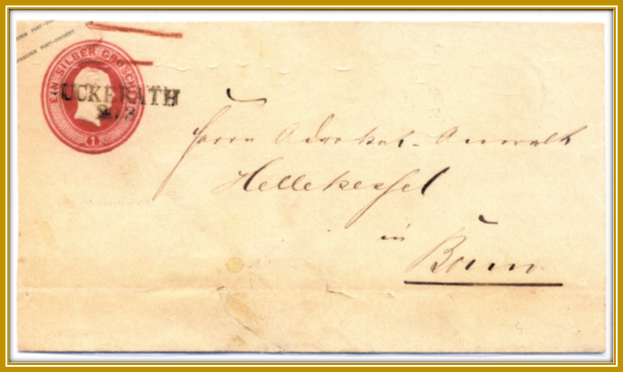 POST-COUVERT
EIN SILBER GROSCHEN
1
UCKERATH
Herrn Advokat-Anwalt
Hellekessel
in
Bonn